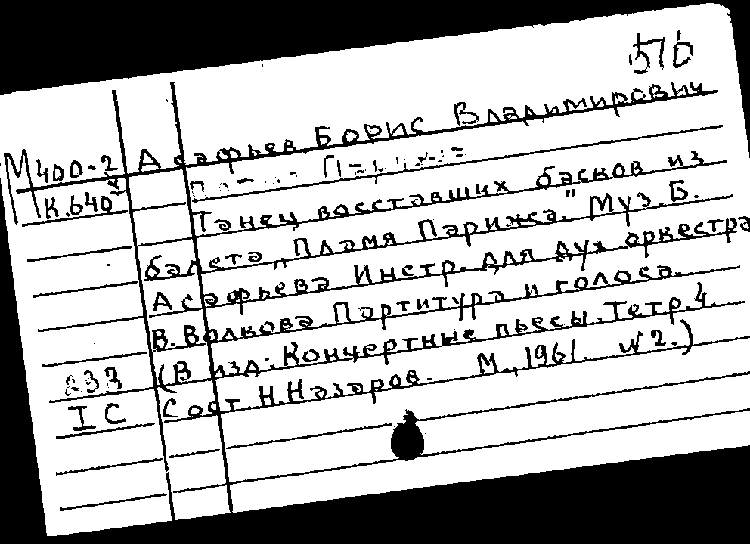 576
М400-2 Асафьев Борис Владимирович
К.640 Пламя Парижа
Танец восставших басков из
балета „Пламя Парижа." Муз. Б.
Асафьева Инстр. для дух оркестра
В. Волкова. Партитура и голоса.
(В изд: Концертные пьесы. Тетр. 4.
Сост Н. Назаров. М., 1961. №2.)
233
IC